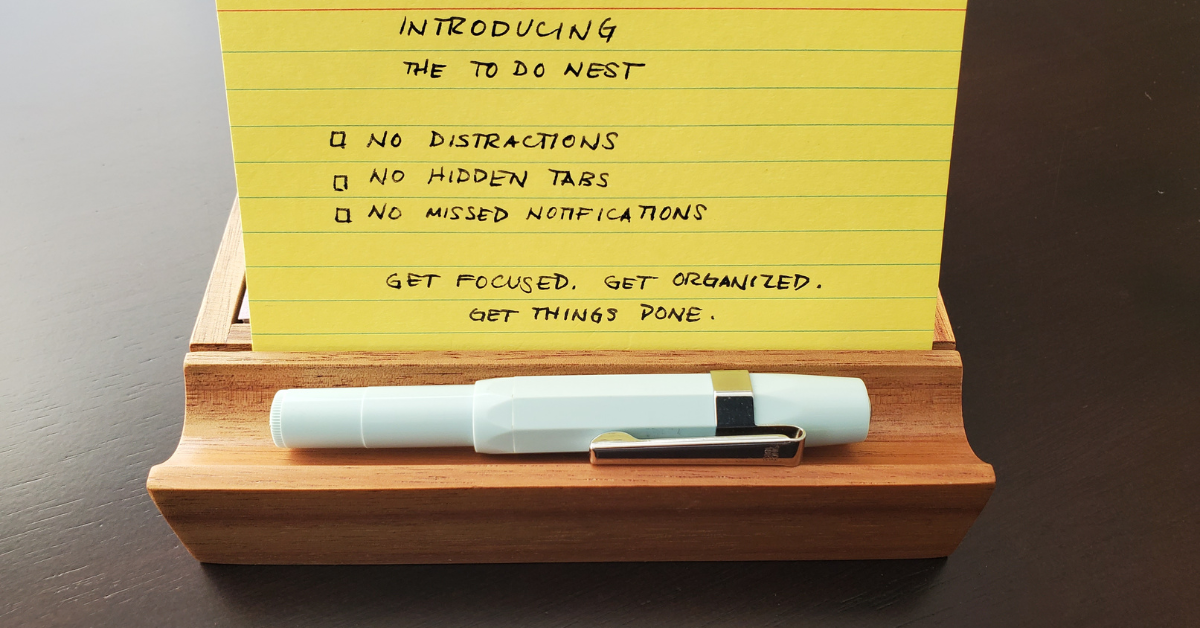 INTRODUCING
THE TO DO NEST
NO DISTRACTIONS
NO HIDDEN TABS
NO MISSED NOTIFICATIONS
GET FOCUSED. GET ORGANIZED.
GET THINGS DONE.